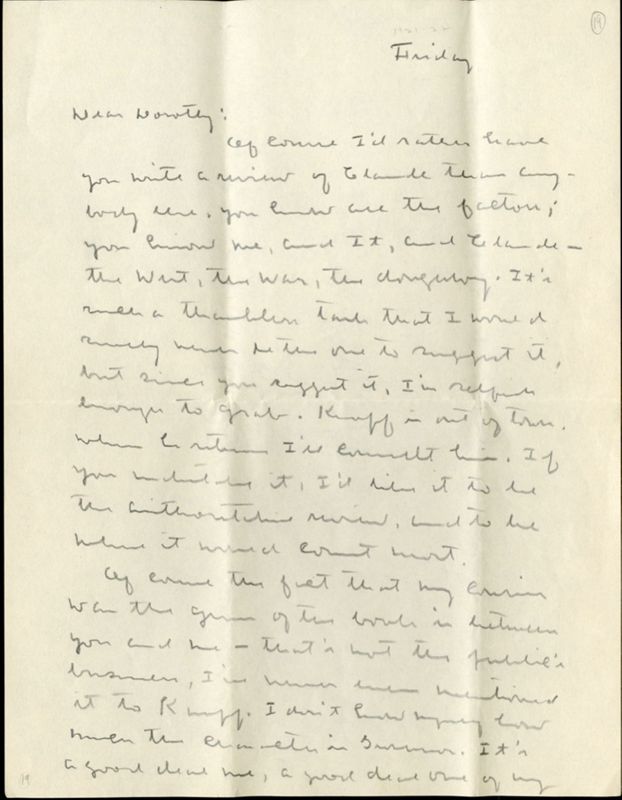 19
1921-22
Friday
Dear Dorothy:
Of course I'd rather have
you write a review of Claude than any-
body else. You know all the factors;
you know me, and It, and Claude —
the West, the War, the doughboy. It's
such a thankless task that I would
surely never be the one to suggest it,
but since you suggest it, I'm selfish
enough to grab. Knopf is out of town.
When he returns I'll consult him. If
you undertake it, I'd like it to be
the authoritative review, and to be
where it would count most.
Of course the fact that my cousin
was the germ of the book is between
you and me — that's not the public's
business, I've never even mentioned
it to Knopf. I don't know myself how
much the character is Grosvenor. It's
a good deal me, a good deal one of my
19